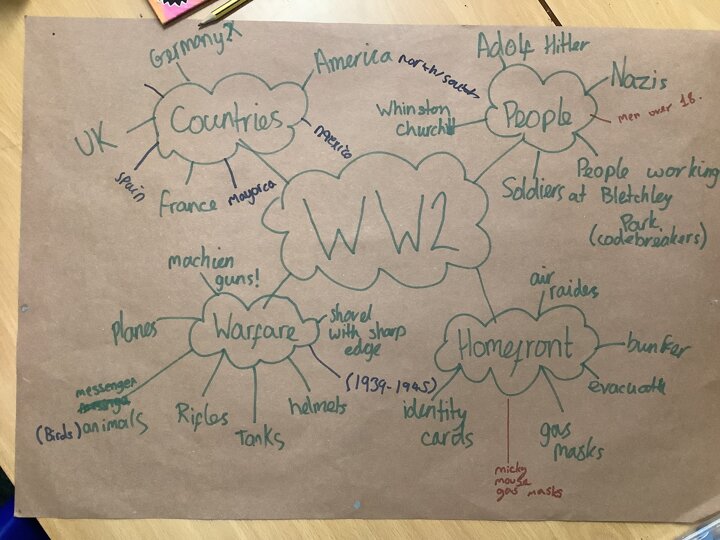 WW2
Countries
Germany
America north/south
mexico
UK
Spain
France
Mayorca
People
Adolf Hitler
Nazis
men over 18.
Whinston
church
Soldiers
People working
at Bletchley
Park
(codebreakers)
Warfare
machien
guns!
planes
shovel
with sharp
edge
(1939-1945)
messenger
(Birds) animals
Rifles
Tanks
helmets
Homefront
air
raides
bunker
evacuati
identity
cards
gas
masks
micky
mouse
gas masks